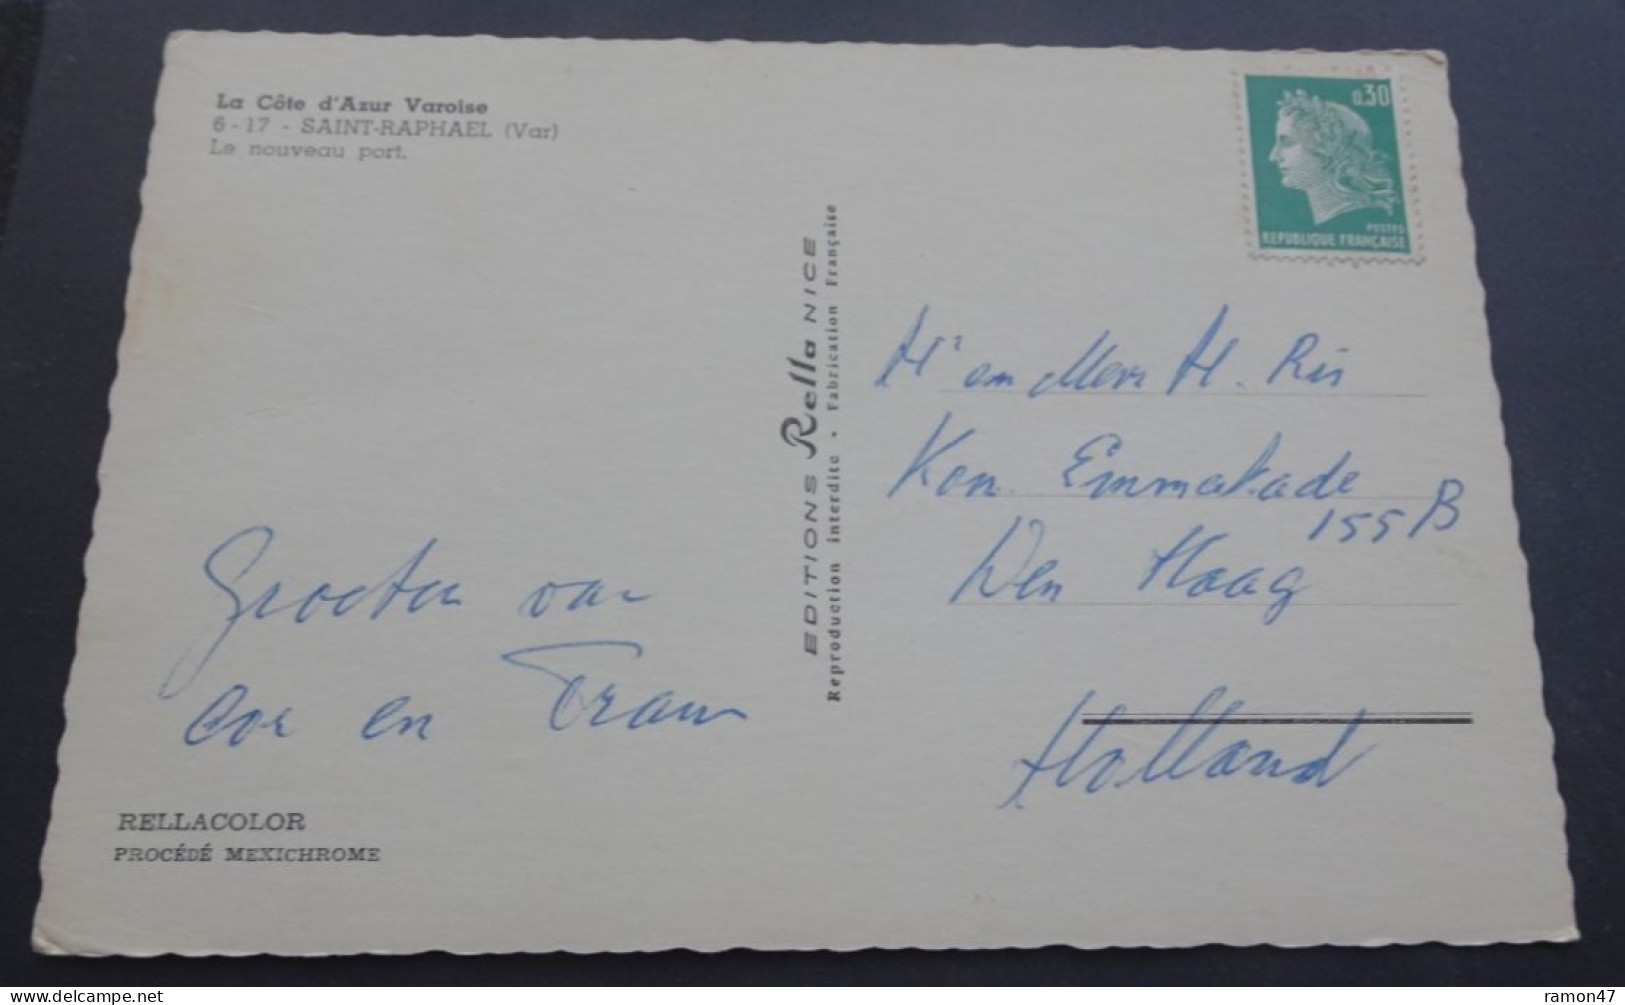 La Côte d'Azur Varoise
6-17 - SAINT-RAPHAEL (Var)
Le nouveau port.
Groeten van
Cor en Frans
RELLACOLOR
PROCÉDÉ MEXICHROME
EDITIONS Rella NICE
Reproduction interdite • Fabrication Française
0,30
POSTES
REPUBLIQUE FRANÇAISE
Hr en Mevr H. Ris
Kon. Emmakade
155 B
Den Haag
Holland
ramon47